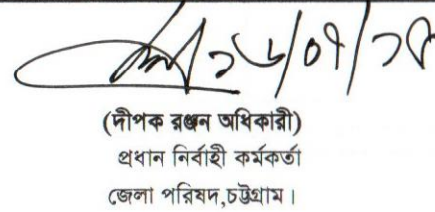 ১৬/০৭/২৫
(দীপক রঞ্জন অধিকারী)
প্রধান নির্বাহী কর্মকর্তা
জেলা পরিষদ,চট্টগ্রাম।